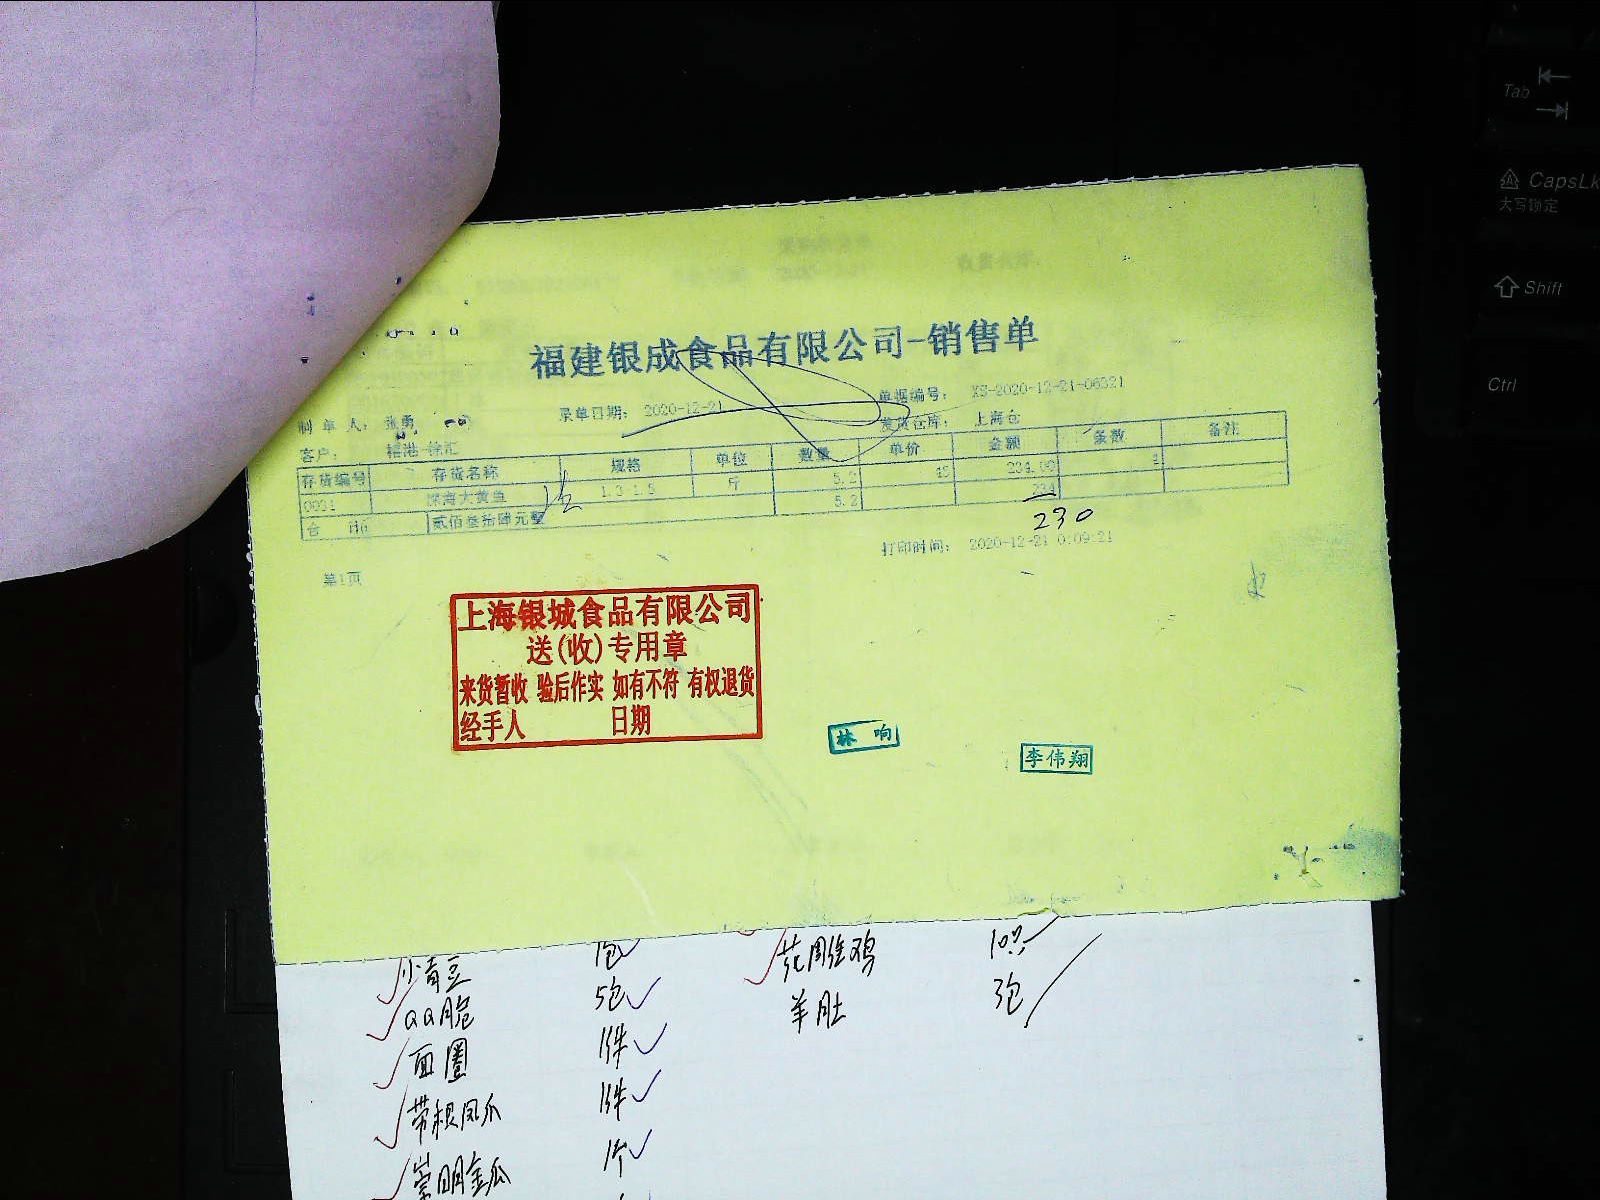 福建银成食品有限公司-销售单
制 单 人： 张勇 录单日期： 2020-12-21 单据编号： XS-2020-12-21-06321
客户： 福港 徐汇 发货仓库： 上海仓
存货编号 存货名称 规格 单位 数量 单价 金额 条数 备注
0031 深海大黄鱼 1.3-1.5 斤 5.2 45 234.00 4
合 计 贰佰叁拾肆元整 5.2 234
230
打印时间： 2020-12-21 0:09:21
第1页
上海银城食品有限公司
送(收)专用章
来货暂收 验后作实 如有不符 有权退货
经手人 日期
林 响
李伟翔
小青豆 1包 花雕鸡
QQ脆 5包 羊肚 3包
面圈 1件
带根凤爪 1件
崇明金瓜 1个
Tab
CapsLk
大写锁定
Shift
Ctrl